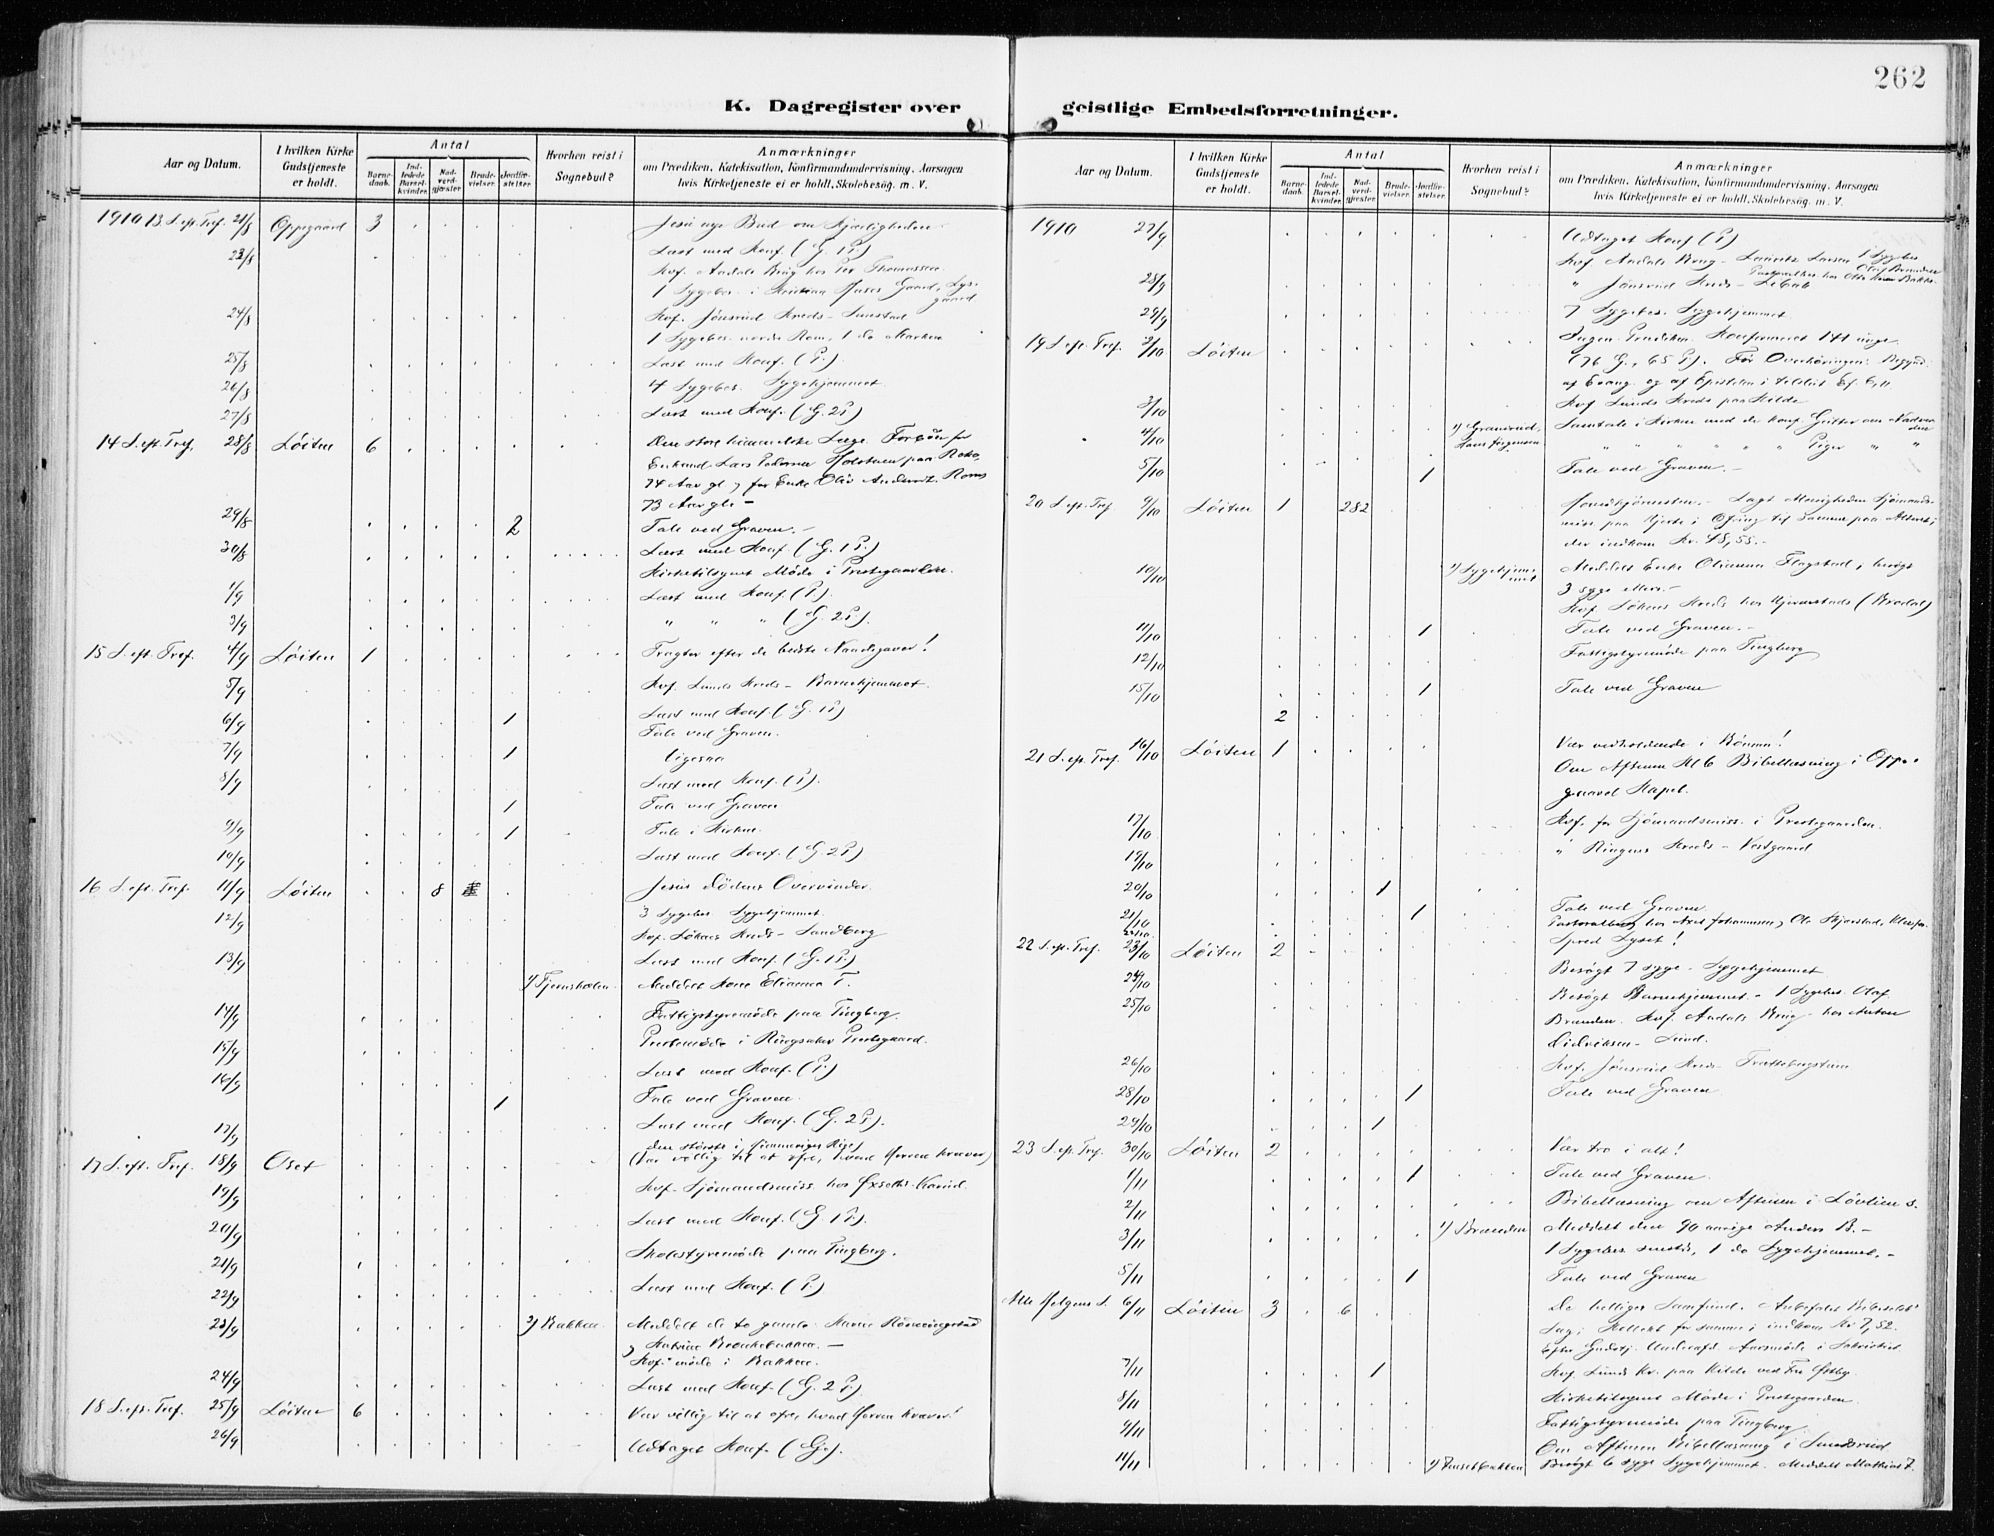 262
K. Dagregister over geistlige Embedsforretninger.
Aar og Datum. I hvilken Kirke Gudstjeneste er holdt. Antal Barnedaab. Indledede Barselkvinder. Nadverdgjæster. Brudevielser. Jordfæstelser. Hvorhen reist i Sognebud? Anmærkninger om Prædiken, Katekisation, Konfirmandundervisning, Aarsagen hvis Kirketjeneste ei er holdt, Skolebesøg. m. V.
1910 13 S. eft. Tref. 21/8 Oppegaard 3 Jesu nye Bud om Kjærligheden.
23/8 Læst med Konf. (G. 1 P.)
Kvf. Aadals Brug hos Per Thomassen
1 Sygebes. i
24/8 Kvf. Jønsrud Kreds
1 Sygebes. 1 do
25/8 Læst med Konf. (P.)
26/8 4 Sygebes. Sygehjemmet
27/8 Læst med Konf. (G. 2 P)
14 S. eft. Tref. 28/8 Løiten 6 Den store himmelske Læge. Forbøn for
Enkemand Lars Pedersen Holstuen paa
74 Aar gl. og for Enke Oliv
73 Aar gl. –
29/8 2 Tale ved Graven. –
30/8 Læst med Konf. (G. 1 P.)
Kirketilsynet Møde i Prestegaarden.
1/9 Læst med Konf. (P.)
3/9 " " " (G. 2 P.)
15 S. eft. Tref. 4/9 Løiten 1 Tragter efter de bedste Naadegaver!
5/9 Kvf. Lunds Kreds – Barnehjemmet.
6/9 Læst med Konf. (G. 1 P)
1 Tale ved Graven.
7/9 1 Ligesaa
8/9 Læst med Konf. (P).
1 Tale ved Graven
9/9 1 Tale i Kirken.
10/9 Læst med Konf. (G. 2 P)
16 S. eft. Tref. 11/9 Løiten 8 Jesus Dødens Overvinder.
12/9 3 Sygebes. Sygehjemmet.
Kvf. Kreds – Sandberg
13/9 Læst med Konf. (G. 1 P)
1) Meddelt
14/9 Fattigstyremøde paa Tingberg.
15/9 Prestemøde i Ringsaker Prestegaard.
16/9 Læst med Konf. (P)
1 Tale ved Graven.
17/9 Læst med Konf. (G. 2 P).
17 S. eft. Tref. 18/9 Oset Den største i Himmeriges Rige
(Vær villig til at ofre, hvad Herren kræver)
19/9 Kvf. Sjømandsmiss. hos
20/9 Læst med Konf. (G. 1 P).
Skolestyremøde paa Tingberg.
21/9
22/9 Læst med Konf. (P)
23/9 2) Bakken. Meddelt de to gamle
Kvf. møde i Bakken.
24/9 Læst med Konf. (G. 2 P.)
18 S. eft. Tref. 25/9 Løiten 6 Vær villig til at ofre, hvad Herren kræver!
26/9 Udtaget Konf. (G).
Aar og Datum. I hvilken Kirke Gudstjeneste er holdt. Antal Barnedaab. Indledede Barselkvinder. Nadverdgjæster. Brudevielser. Jordfæstelser. Hvorhen reist i Sognebud? Anmærkninger om Prædiken, Katekisation, Konfirmandundervisning, Aarsagen hvis Kirketjeneste ei er holdt, Skolebesøg. m. V.
1910 27/9 Udtaget Konf. (P)
Kvf. Aadals Brug – Lauritz Larsen 1 Sygebes
28/9 " Jønsrud Kreds –
29/9 7 Sygebes. Sygehjemmet
19 S. eft. Tref. 2/10 Løiten Ingen Prædiken. Konfirmeret 141 unge
(76 G., 65 P). Før Overhøringen: Begynd.
af Evang. og af Epistelen
3/10 Kvf. Lunds Kreds paa Kilde
4/10 1) Hans Jørgensen. Samtale i Kirken med de konf. Gutter om Nadverden
" " " " " Piger " "
5/10 1 Tale ved Graven. –
20 S. eft. Tref. 9/10 Løiten 1 282 – Lagt Menigheden Sjømandsmiss. paa Hjerte; Ofring til samme paa Alteret;
der indkom Kr. 48,55. –
10/10 1) Sygehjemmet Meddelt Enke Flagstad, besøgt
3 syge ellers. –
Kvf. Kreds hos
11/10 1 Tale ved Graven. –
12/10 Fattigstyremøde paa Tingberg
15/10 1 Tale ved Graven
2
21 S. eft. Tref. 16/10 Løiten 1 Vær vedholdende i Bønnen!
Om Aftenen Kl 6 Bibellæsning i Oppegaard Kapel.
17/10 Kvf. for Sjømandsmiss. i Prestegaarden.
19/10 " Ringnes Kreds – Vestgaard
20/10 1
21/10 1 Tale ved Graven
22 S. eft. Tref. 23/10 Løiten 2 Spred Lyset!
24/10 Besøgt 7 syge – Sygehjemmet
25/10 Besøgt Barnehjemmet – 1 Sygebes. Olaf
Branden. Kvf. Aadals Brug – hos Anton
Didriksen – Lund.
26/10 Kvf. Jønsrud Kreds
28/10 1 Tale ved Graven
29/10 1
23 S. eft. Tref. 30/10 Løiten 2 Vær tro i alt!
1/11 1 Tale ved Graven.
2/11 Bibellæsning om Aftenen i
3/11 1) Brænden Meddelt den 90 aarige Anders B. –
1 Sygebes 1 do Sygehjemmet. –
5/11 1 Tale ved Graven
Alle Helgens S. 6/11 Løiten 3 6 De helliges Samfund. Anbefalet Bibelselsk.
Sag; Kollekt for samme; indkom Kr 7,52.
Efter Gudstj. Aarsmøde i Sakristiet
7/11 1 Kvf. Lunds Kr. paa Kilde ved Fru Østby.
8/11 Kirketilsynet Møde i Prestegaarden.
9/11 Fattigstyremøde paa Tingberg.
Om Aftenen Bibellæsning i
11/11 1) Besøgt 6 syge Sygehjemmet. Meddelt Mathias